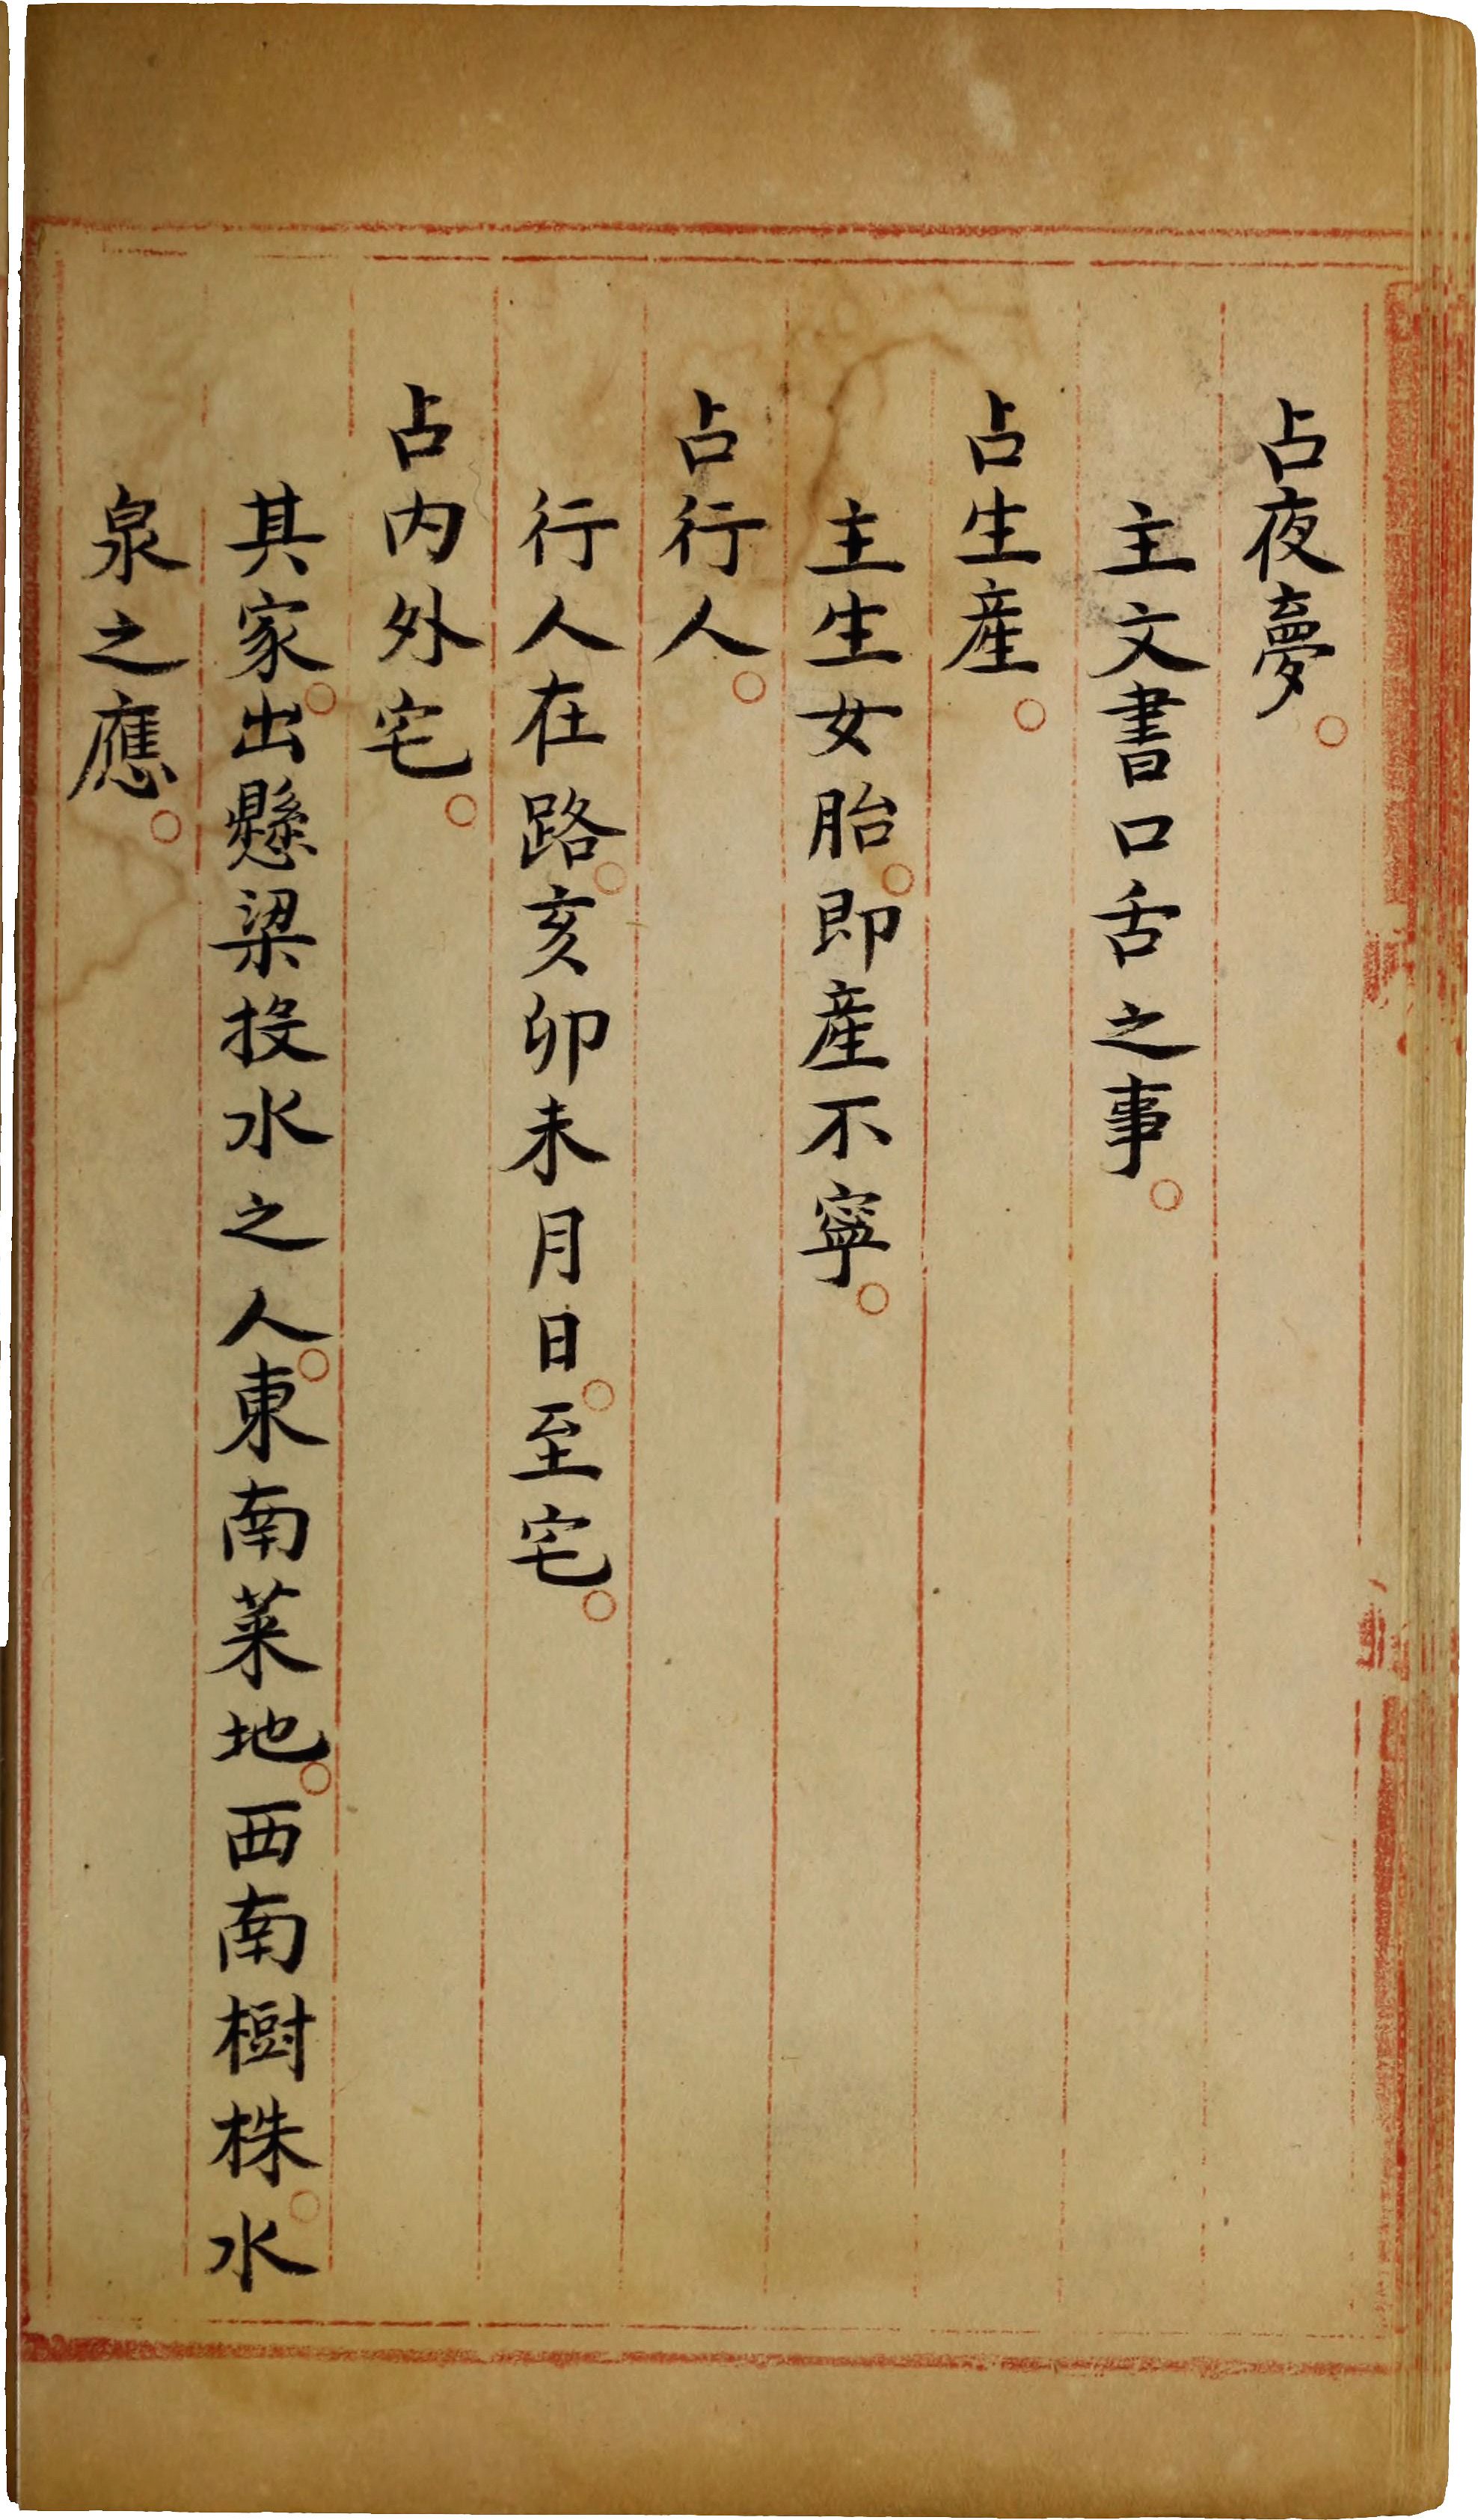 占夜夢。
主文書口舌之事。
占生産。
主生女胎。即產不寧。
占行人。
行人在路。亥卯未月日。至宅。
占內外宅。
其家。出懸梁投水之人。東南菜地。西南樹株。水
泉之應。